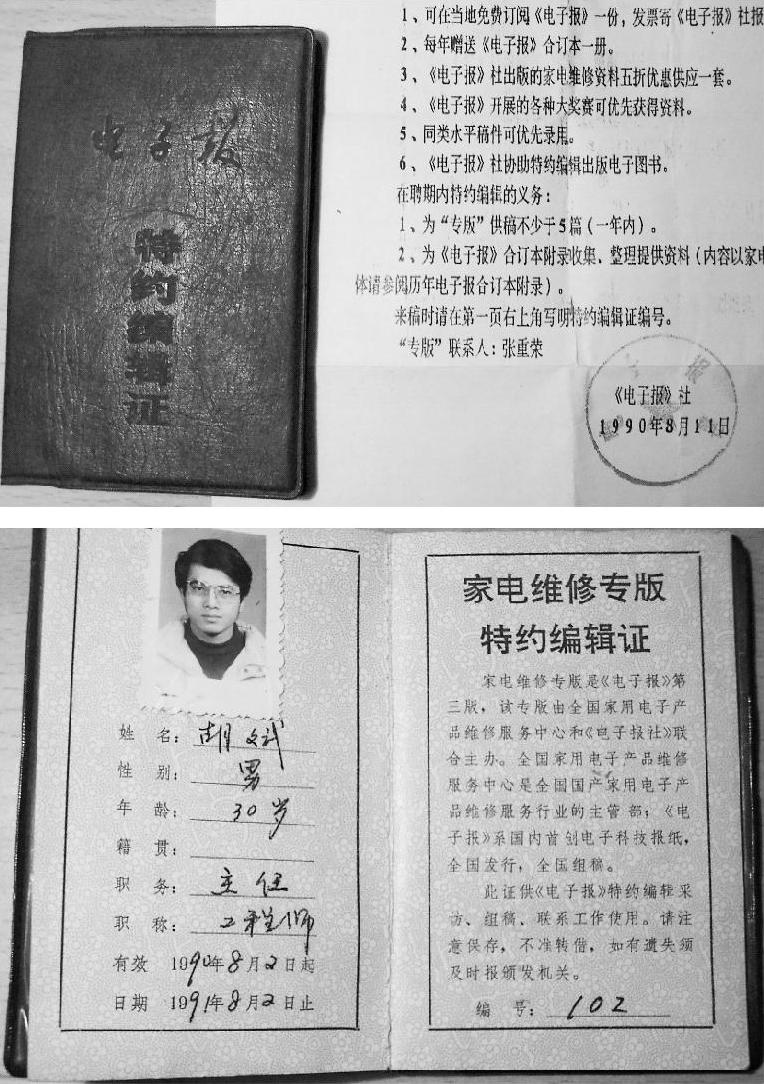 电子报
特约编辑证
1、可在当地免费订阅《电子报》一份，发票寄《电子报》社报
2、每年赠送《电子报》合订本一册。
3、《电子报》社出版的家电维修资料五折优惠供应一套。
4、《电子报》开展的各种大奖赛可优先获得资料。
5、同类水平稿件可优先录用。
6、《电子报》社协助特约编辑出版电子图书。
在聘期内特约编辑的义务：
1、为“专版”供稿不少于5篇（一年内）。
2、为《电子报》合订本附录收集、整理提供资料（内容以家电
体请参阅历年电子报合订本附录）。
来稿时请在第一页右上角写明特约编辑证编号。
“专版”联系人：张重荣
《电子报》社
1990年8月11日
姓 名：胡斌
性 别：男
年 龄：30岁
籍 贯：
职 务：主任
职 称：工程师
有效 1990年8月2日起
日期 1991年8月2日止
家电维修专版
特约编辑证
家电维修专版是《电子报》第
三版，该专版由全国家用电子产
品维修服务中心和《电子报社》联
合主办。全国家用电子产品维修
服务中心是全国国产家用电子产
品维修服务行业的主管部；《电
子报》系国内首创电子科技报纸，
全国发行，全国组稿。
此证供《电子报》特约编辑采
访、组稿、联系工作使用。请注
意保存，不准转借，如有遗失须
及时报颁发机关。
编 号：102